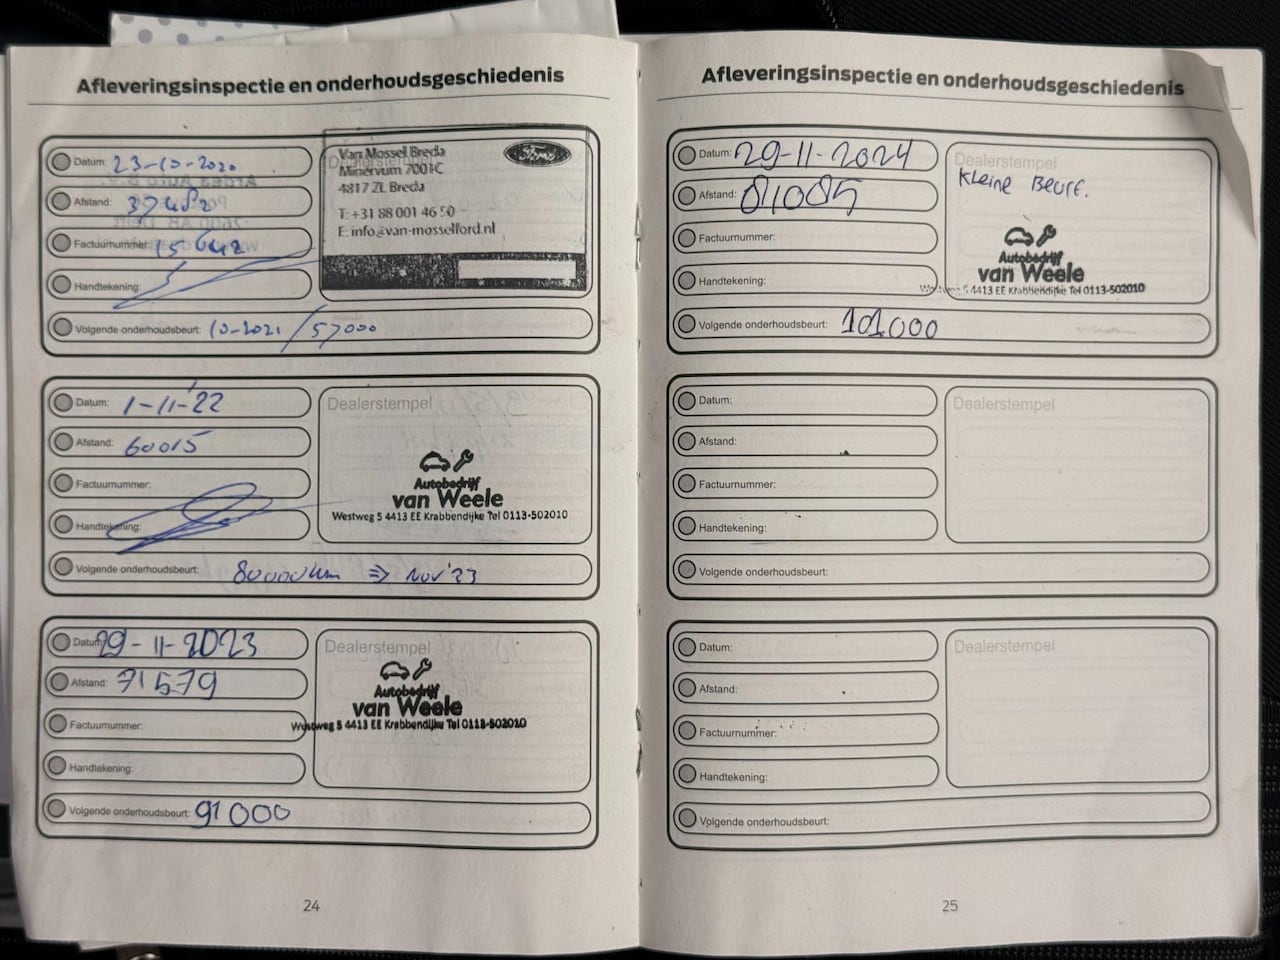 Afleveringsinspectie en onderhoudsgeschiedenis
Datum: 23-10-2020
Afstand: 37482
Factuurnummer: 15
Handtekening:
Volgende onderhoudsbeurt: 10-2021 / 57000
Dealerstempel
Van Mossel Breda
Minervum 7001C
4817 ZL Breda
T: +31 88 001 46 50
E: info@van-mosselford.nl
Ford
Datum: 1-11-'22
Afstand: 60015
Factuurnummer:
Handtekening:
Volgende onderhoudsbeurt: 80000 km => Nov '23
Dealerstempel
Autobedrijf
van Weele
Westweg 5 4413 EE Krabbendijke Tel 0113-502010
Datum: 29-11-2023
Afstand: 71579
Factuurnummer:
Handtekening:
Volgende onderhoudsbeurt: 91000
Dealerstempel
Autobedrijf
van Weele
Westweg 5 4413 EE Krabbendijke Tel 0113-502010
24
Afleveringsinspectie en onderhoudsgeschiedenis
Datum: 29-11-2024
Afstand: 81085
Factuurnummer:
Handtekening:
Volgende onderhoudsbeurt: 101000
Dealerstempel
Kleine Beurt.
Autobedrijf
van Weele
Westweg 5 4413 EE Krabbendijke Tel 0113-502010
Datum:
Afstand:
Factuurnummer:
Handtekening:
Volgende onderhoudsbeurt:
Dealerstempel
Datum:
Afstand:
Factuurnummer:
Handtekening:
Volgende onderhoudsbeurt:
Dealerstempel
25